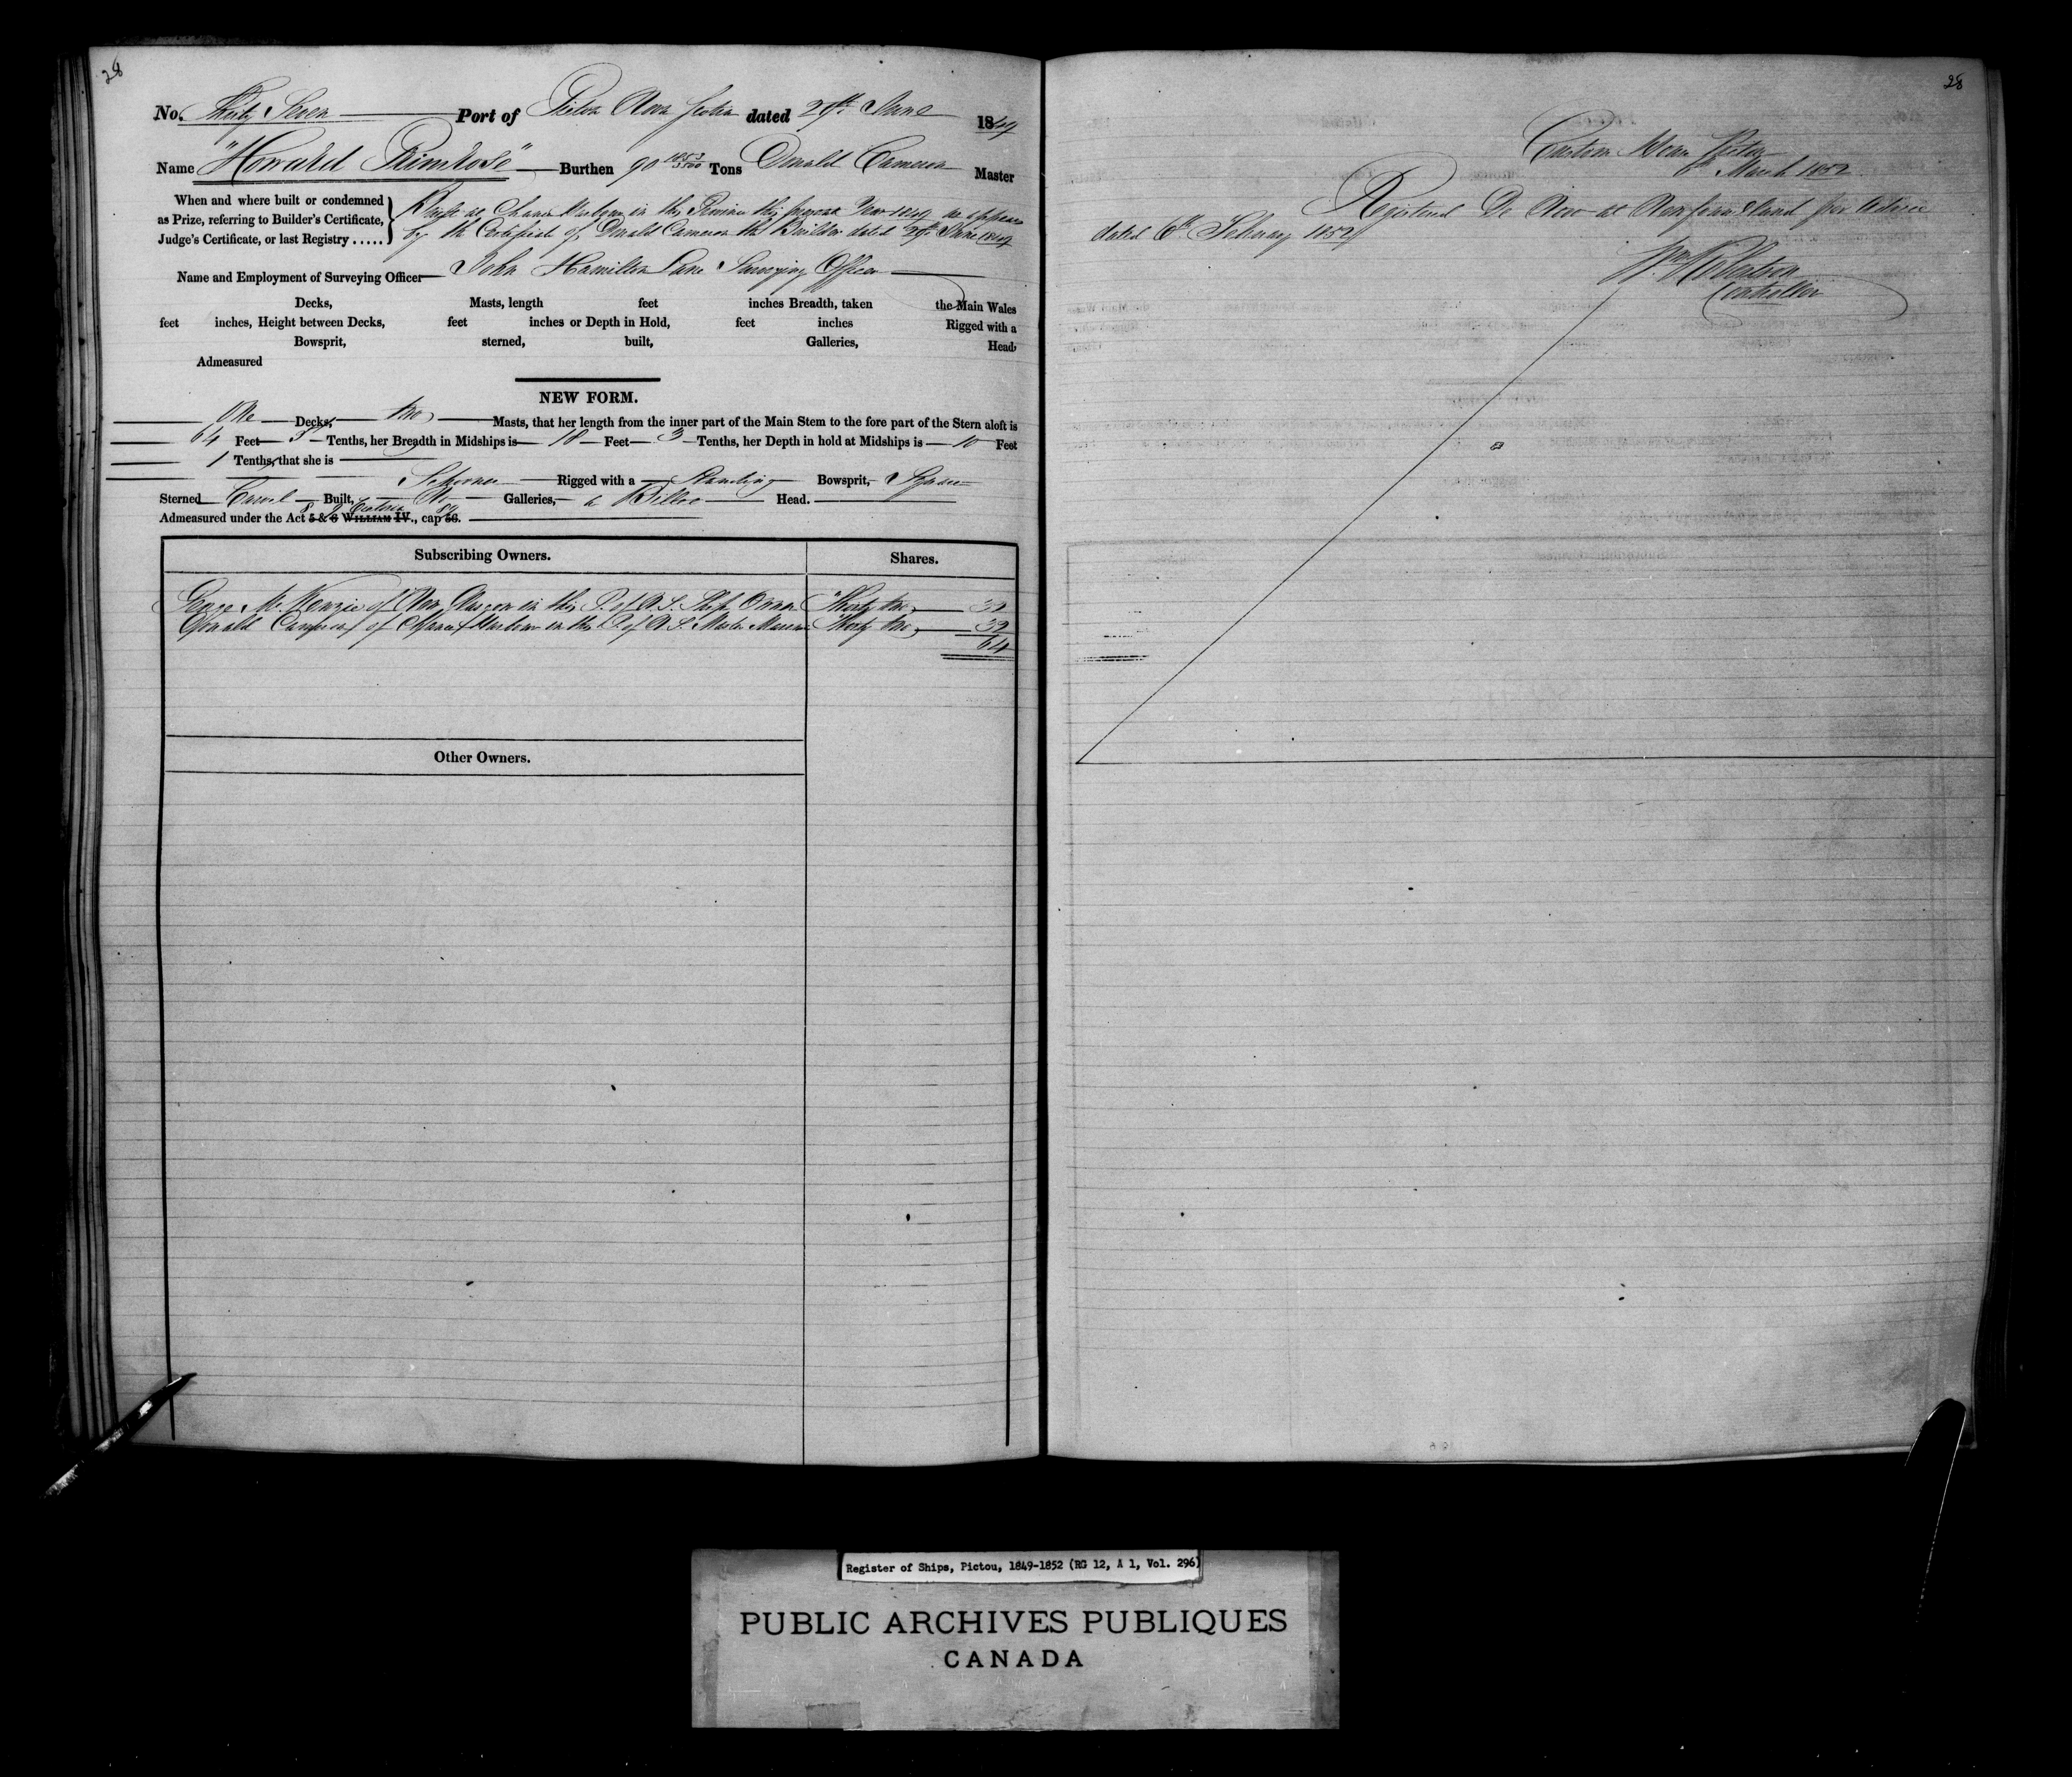 28
No. Thirty Seven Port of Pictou Nova Scotia dated 29th June 1849
Name "Howard Primrose" Burthen 90 Tons Donald Cameron Master
When and where built or condemned
as Prize, referring to Builder's Certificate,
Judge's Certificate, or last Registry .....
Built at Harbour in this Province this present Year 1849 as appears
by the Certificate of Donald Cameron the Builder dated 29th June 1849
Name and Employment of Surveying Officer John Hamilton Lane Surveying Officer
Decks, Masts, length feet inches Breadth, taken the Main Wales
feet inches, Height between Decks, feet inches or Depth in Hold, feet inches Rigged with a
Bowsprit, sterned, built, Galleries, Head,
Admeasured
NEW FORM.
One Decks, two Masts, that her length from the inner part of the Main Stem to the fore part of the Stern aloft is
64 Feet 5 Tenths, her Breadth in Midships is 18 Feet 3 Tenths, her Depth in hold at Midships is 10 Feet
1 Tenths, that she is
Schooner Rigged with a Standing Bowsprit, Square
Sterned Carvel Built, No Galleries, a Billet Head.
8 & 9 Victoria 89
Admeasured under the Act 5 & 6 WILLIAM IV., cap 56.
Subscribing Owners. Shares.
George McKenzie of New Glasgow in this P. of N.S. Ship Owner Thirty two 32
Donald Cameron of Harbour in this P. of N.S. Master Mariner Thirty two 32
64
Other Owners.
28
Custom House Pictou
6th March 1852
Registered De Novo at Newfoundland per Advice
dated 6th February 1852
Wm Robertson
Controller
Register of Ships, Pictou, 1849-1852 (RG 12, A 1, Vol. 296)
PUBLIC ARCHIVES PUBLIQUES
CANADA